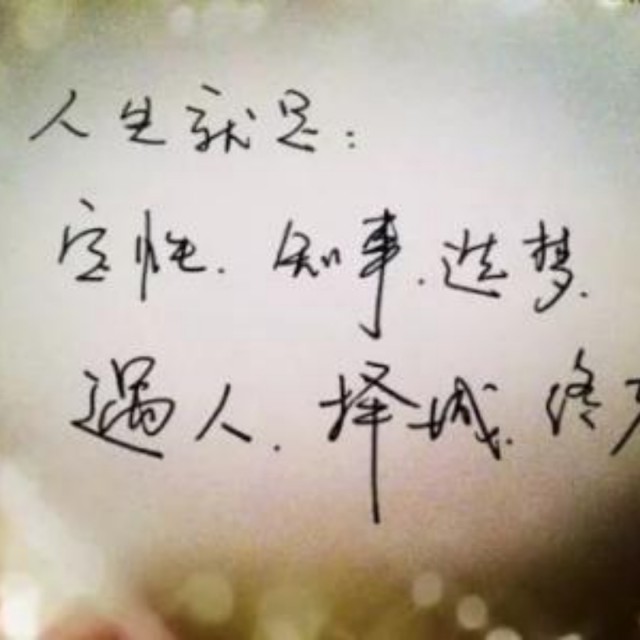 人生就是：
定性.知事.造梦.
遇人.择城.终